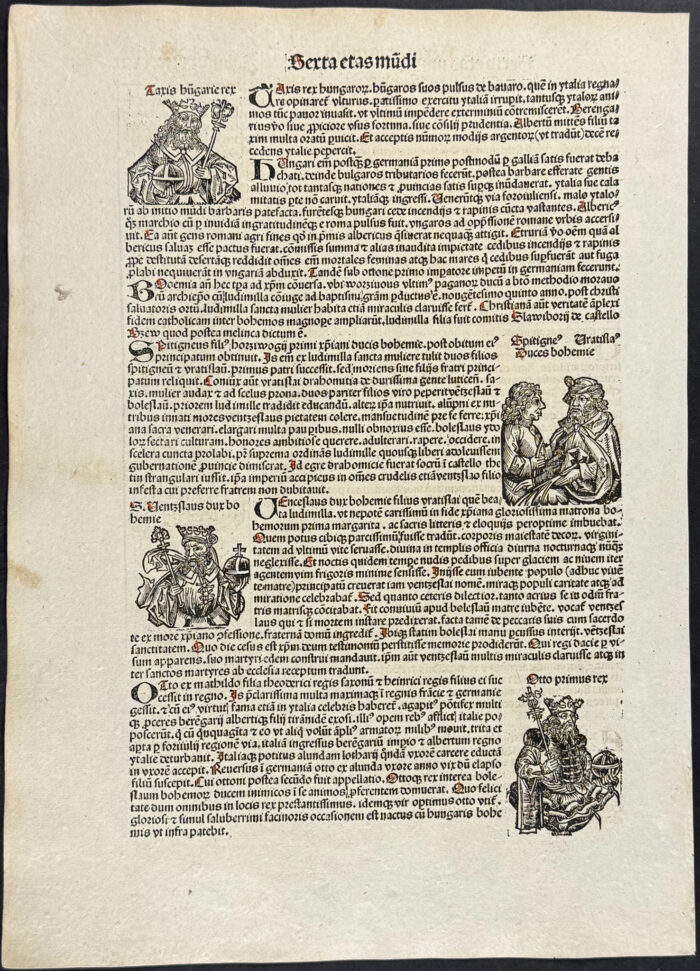 Sexta etas mūdi
Taxis hūgarie rex
TAxis rex hungaroꝝ. hūgaros suos pulsus de bauaro. quē in ytalia regna
re opinaret vlturus. ꝑatissimo exercitu ytaliā irrupit. tantusqꝫ ytaloꝝ ani
mos tūc pauor inuasit. vt vltimū impēdere exterminiū cōtremiscerēt. Berenga
rius vo siue ꝓpiciore vsus fortuna. siue cōsilij prudentia. Albertū mittēs filiū ta
xim multa oratū ꝑuicit. Et acceptis nūmoꝝ modijs argentoꝝ (vt tradūt) decē re
cedens ytalie pepercit.
HUngari em̄ postqꝫ ꝑ germaniā primo postmodū ꝑ galliā satis fuerat deba
chati. deinde bulgaros tributarios fecerūt. postea barbare efferate gentis
alluuio, tot tantasqꝫ nationes ⁊ ꝓuincias satis supqꝫ inūdauerat. ytalia sue cala
mitatis ꝑte nō caruit. ytaliāqꝫ ingressi. Uenerūtqꝫ via foroiuliensi. malo ytalo
rū ab initio mūdi barbaris patefacta. furētesqꝫ hungari cede incendijs ⁊ rapinis cūcta vastantes. Alberic
qꝫ marchio cū ꝑ inuidiā ingratitudinēqꝫ e roma pulsus fuit. vngaros ad opp̄ssionē romane vrbis accersi
uit. Ea aūt gens romani agri fines qd̓ in p̄mis albericus q̄siuerat nequaqꝫ attigit. Etruriā vo oēm quā al
bericus saluaꝫ esse pactus fuerat. cōmissis summa ⁊ alias inaudita impietate cedibus incendijs ⁊ rapinis
ꝓpe destitutā desertāqꝫ reddidit om̄es em̄ mortales feminas atqꝫ hac mares q̄ cedibus supfuerāt aut fuga
ꝓlabi nequiuerāt in vngariā abduxit. Tandē sub ottone primo impatore impetū in germaniam fecerunt.
BOemia aūt hec tpa ad xp̄m cōuersa. vbi worziuous vltim paganoꝝ ducū a btō methodio morauo
rū archiepo cū ludimilla cōiuge ad baptismi grām pductus ē. nōgētesimo quinto anno. post christi
saluatoris ortū. ludimilla sancta mulier habita etiā miraculis claruisse fert. Christianā aūt veritatē āplexi
fidem catholicam inter bohemos magnope ampliarūt. ludimilla filia fuit comitis Slawiborij de castello
Bzew quod postea melinca dictum ē.
Spitigne Uratisla
Duces bohemie
SPitigneus fili horziwogij primi xp̄iani ducis bohemie. post obitum ei
principatum obtinuit. Is em̄ ex ludimilla sancta muliere tulit duos filios
spitigneū ⁊ vratislaū. primus patri successit. sed moriens sine filijs fratri princi
patum reliquit. Coniux aūt vratislai drahomitia de durissima gente luticen. sa
xis. mulier audax ⁊ ad scelus prona. duos pariter filios viro peperit vētzeslaū ⁊
boleslaū. priorem ludimille tradidit educandū. alter ip̄a nutriuit. alūpni ex nu
tribus innati mores ventzeslaus pietatem colere. mansuetudinē pre se ferre. xp̄i
ana sacra venerari. elargiri multa paupibus. nulli obnoxius esse. boleslaus ydo
loꝝ sectari culturam. honores ambitiose querere. adulterari. rapere. occidere, in
scelera cuncta prolabi. pr̄ suprema ordinās ludimille quousqꝫ liberi adoleuissent
gubernationē ꝓuincie dimiserat. Id egre drahomicie fuerat socrū ī castello the
tin strangulari iussit. ip̄a imperiū accipiēs in om̄es crudelis etiā ventzslao filio
infesta cui preferre fratrem non dubitauit.
S. Uentzslaus dux bo
hemie
UEnceslaus dux bohemie filius vratislai quē bea
ta ludimilla. vt nepotē carissimū in fide xp̄iana gloriosissima matrona bo
hemorum prima margarita. ac sacris litteris ⁊ eloquijs peroptime imbuebat.
Quem potus cibiqꝫ parcissimū fuisse tradūt. corporis maiestate decoꝝ. virgini
tatem ad vltimū vite seruasse. diuina in templis officia diurna nocturnaqꝫ nūqꝫ
neglexisse. Et noctus quidem tempe nudis pedibus super glaciem ac niuem iter
agentem vim frigoris minime sensisse. Iniisse cum iubente populo (adhuc viuēte
matre) principatū creuerat iam ventzeslai nomē. miraqꝫ populi caritate atqꝫ ad
miratione celebrabat. Sed quanto ceteris dilectior. tanto acrius se in odiū fra
tris matrisqꝫ cōcitabat. Fit conuiuiū apud boleslaū matre iubēte. vocat ventzes
laus qui ⁊ si mortem instare predixerat. facta tamē de peccatis suis cum sacerdo
te ex more xp̄iano ꝓfessione. fraternā domū ingredit. Ibiqꝫ statim boleslai manu pcussus interijt. vētzeslai
sanctitatem. Quo die cesus est xp̄m deum testimoniū perstitisse memorie prodiderūt. Qui regi dacie ꝑ vi
sum apparens. suo martyri edem construi mandauit. ip̄m aūt ventzeslaū multis miraculis claruisse atqꝫ in
ter sanctos martyres ab ecclesia receptum tradunt.
Otto primus rex
OTto ex mathildo filia theodorici regis saxonū ⁊ heinrici regis filius ei suc
cessit in regno. Is p̄clarissima multa maximaqꝫ ī regnis frācie ⁊ germanie
gessit. ⁊ cū ei virtut fama etiā in ytalia celebris haberet. agapit pōtifex multi
qꝫ ꝓceres berēgarij albertiqꝫ filij tirānidē exosi. illi opem reb afflict italie po
poscerūt. q̄ cū q̄nquagīta ⁊ eo vt aliq̄ volūt āpli armatoꝝ milib mouit, trita et
apta ꝑ foriiulij regionē via. italiā ingressus berēgariū impio ⁊ albertum regno
ytalie deturbauit. Italiaqꝫ potitus alundam lotharij q̄ndā vxorē carcere eductā
in vxorē accepit. Reuersus ī germaniā otto ex alunda vxore anno vix dū elapso
filiū suscepit. Cui ottoni postea secūdo fuit appellatio. Ottoqꝫ rex interea bole
slaum bohemoꝝ ducem inimicos ī se animos ꝓferentem domuerat. Quo felici
tate dum omnibus in locis rex prestantissimus. idemqꝫ vir optimus otto vtit.
gloriose ⁊ simul saluberrimi facinoris occasionem est nactus cū hungaris bohe
mis vt infra patebit.